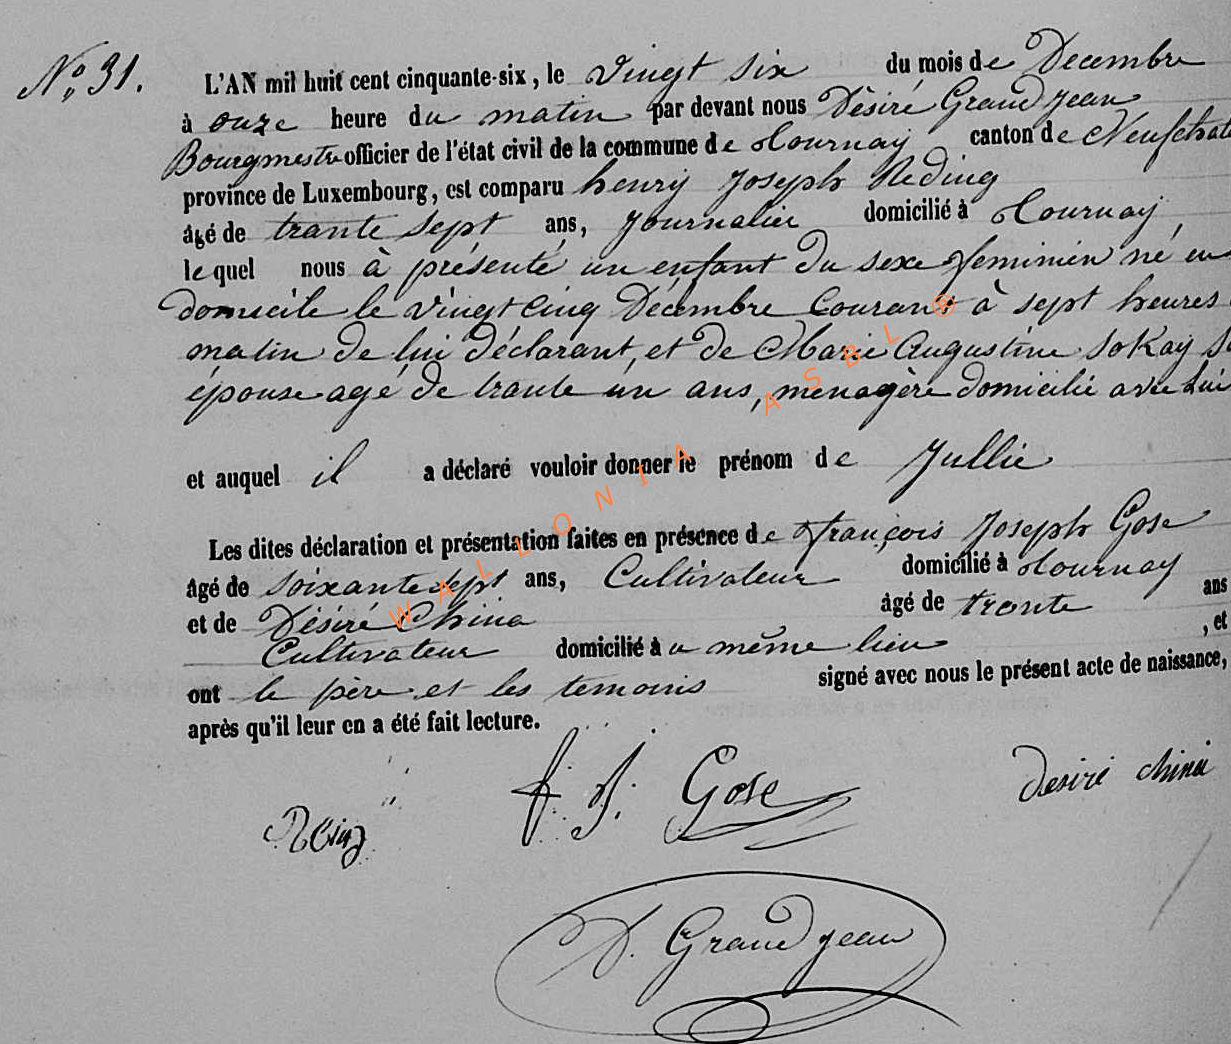 No 31.
L'AN mil huit cent cinquante-six, le vingt six du mois de Decembre
à onze heure du matin par devant nous Dèsiré Grandjean
Bourgmestre officier de l'état civil de la commune de Tournay canton de Neufchate
province de Luxembourg, est comparu henry Joseph Reding
âgé de trante sept ans, Journalier domicilié à Tournay,
lequel nous à présenté un enfant du sexe feminien né en
domicile le vingt cinq Décembre Courant à sept heures
matin de lui déclarant, et de Marie Augustine Sokay
épouse agé de trante un ans, menagère domicilié avec lui
et auquel il a déclaré vouloir donner le prénom de Jullie
Les dites déclaration et présentation faites en présence de françois Joseph Gose
âgé de soixante sept ans, Cultivateur domicilié à Tournay
et de Désiré China âgé de trante ans
Cultivateur domicilié à u même lieu , et
ont le père et les temoins signé avec nous le présent acte de naissance,
après qu'il leur en a été fait lecture.
f. J. Gose
desiré chinà
D. Grandjean
WALLONIA ASBL ®